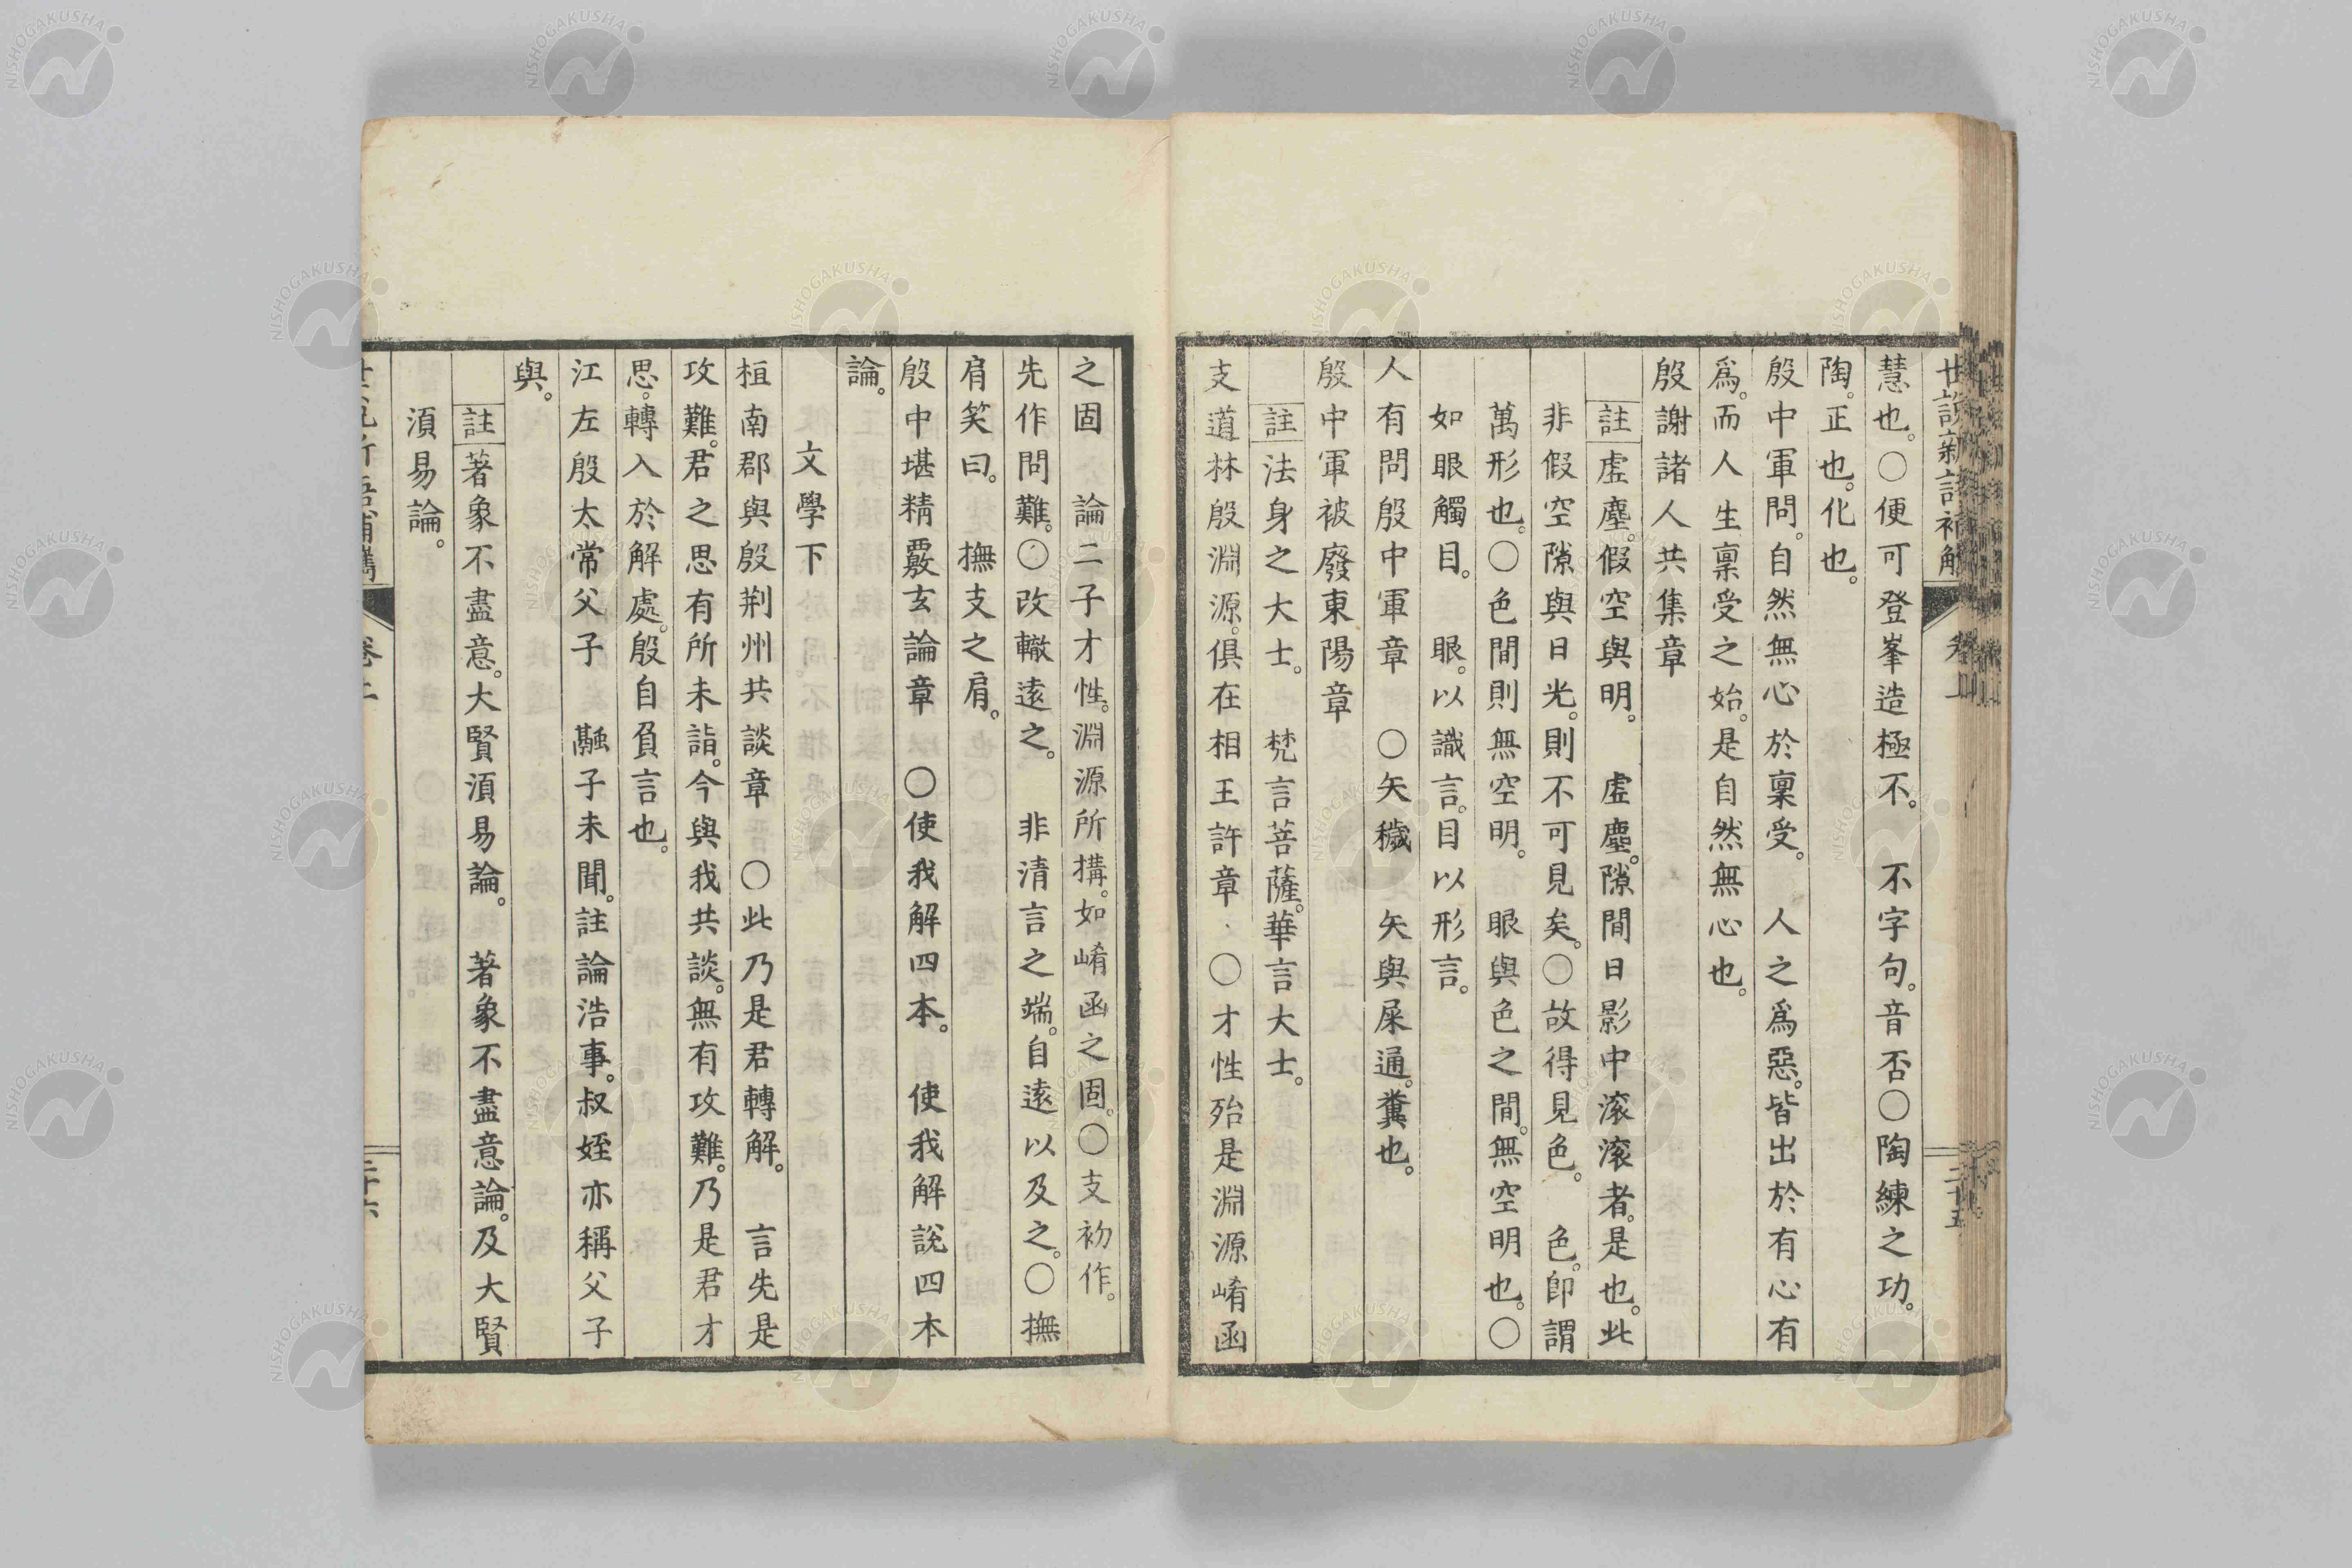 慧也。○便可登峯造極不。　不字句。音否○陶練之功。
陶。正也。化也。
殷中軍問。自然無心於稟受。　人之爲惡。皆出於有心有
爲。而人生稟受之始。是自然無心也。
殷謝諸人共集章
註虛塵。假空與明。　虛塵。隙間日影中滾滾者。是也。此
非假空隙與日光。則不可見矣。○故得見色。　色。卽謂
萬形也。○色間則無空明。　眼與色之間。無空明也。○
如眼觸目。　眼。以識言。目以形言。
人有問殷中軍章　○矢穢　矢與屎通。糞也。
殷中軍被廢東陽章
註法身之大士。　梵言菩薩。華言大士。
支道林殷淵源。俱在相王許章　○才性殆是淵源崤函
之固　論二子才性。淵源所搆。如崤函之固。○支初作。
先作問難。○改轍遠之。　非清言之端。自遠以及之。○撫
肩笑曰。　撫支之肩。
殷中堪精覈玄論章　○使我解四本。　使我解說四本
論。
文學下
桓南郡與殷荆州共談章　○此乃是君轉解。　言先是
攻難。君之思有所未詣。今與我共談。無有攻難。乃是君才
思。轉入於解處。殷自負言也。
江左殷太常父子　融子未聞。註論浩事。叔姪亦稱父子
與。
註著象不盡意。大賢須易論。　著象不盡意論。及大賢
須易論。
卷上
二十五
二十六
NISHOGAKUSHA